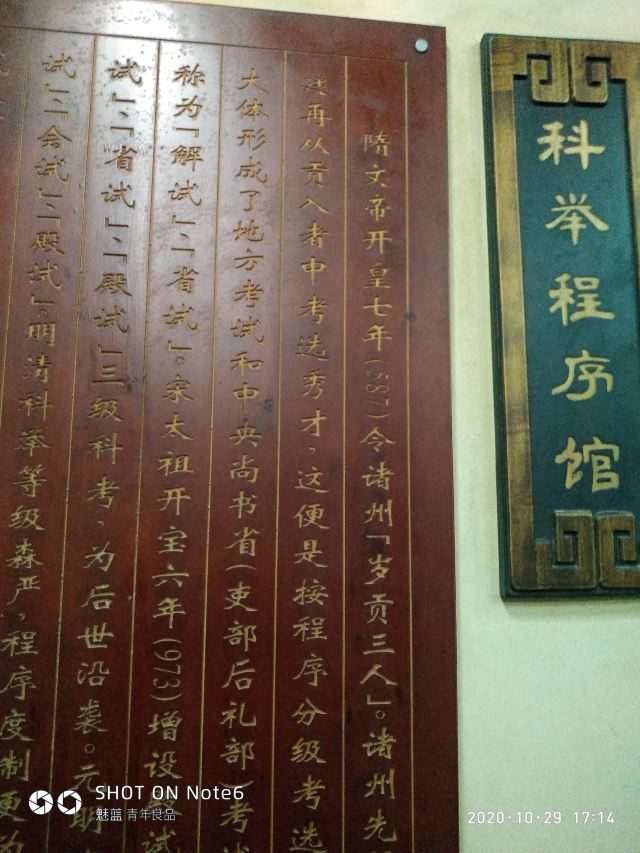 科举程序馆
隋文帝开皇七年(587)令诸州「岁贡三人」。诸州先
再从贡入者中考选秀才，这便是按程序分级考选
大体形成了地方考试和中央尚书省(吏部后礼部)考试
称为「解试」、「省试」。宋太祖开宝六年(973)增设殿试
试」、「省试」、「殿试」三级科考，为后世沿袭。元明
试」、「会试」、「殿试」。明清科举等级森严，程序度制更为
SHOT ON Note6
魅蓝 青年良品
2020·10·29 17:14